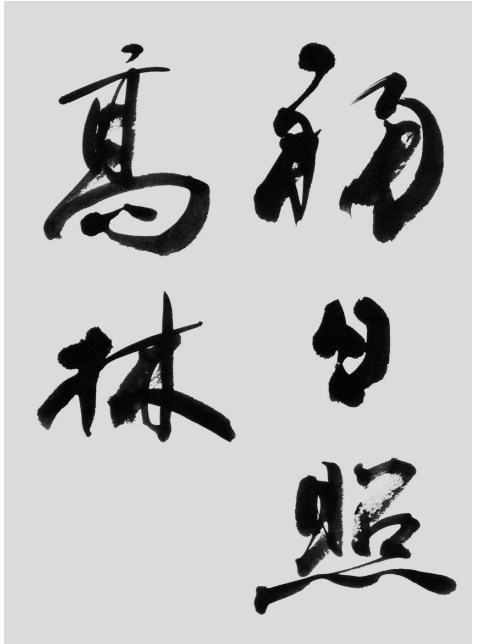 初日照
高林